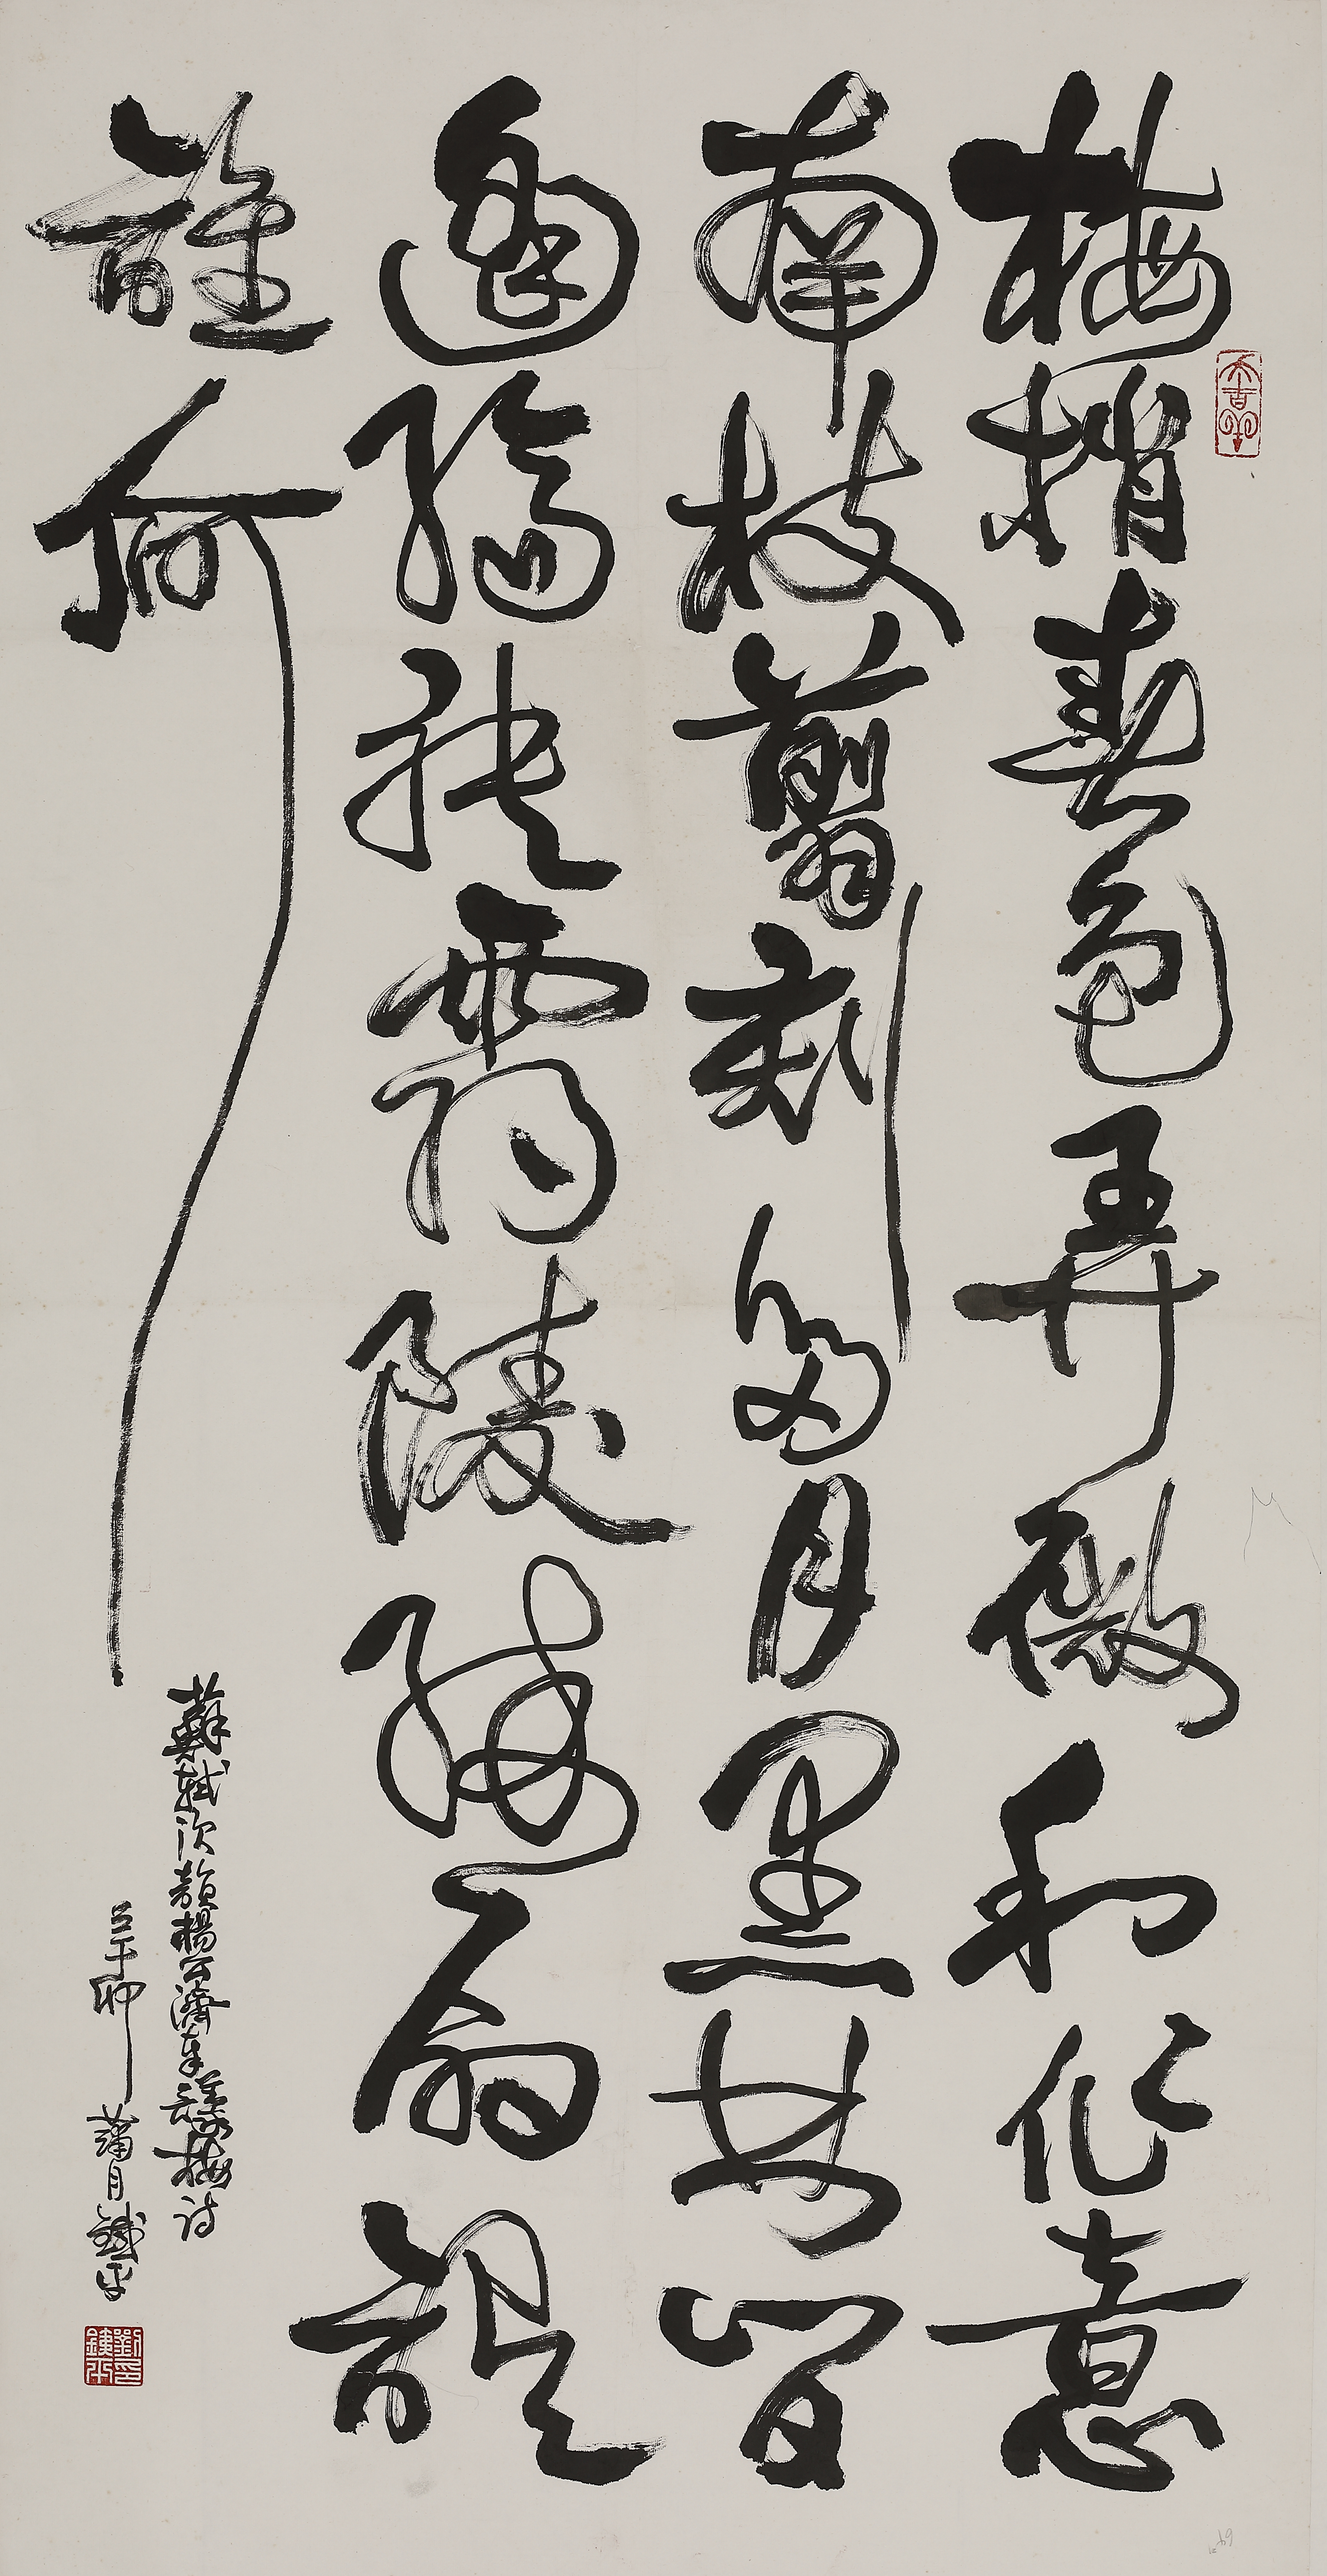 大吉羊
梅梢春色弄微和作意
南枝翦刻多月黑林間
逢縞袂霸陵醉尉誤
誰何
蘇軾次韻楊公濟奉議梅詩
辛卯蒲月鐵平
劉鐵平印